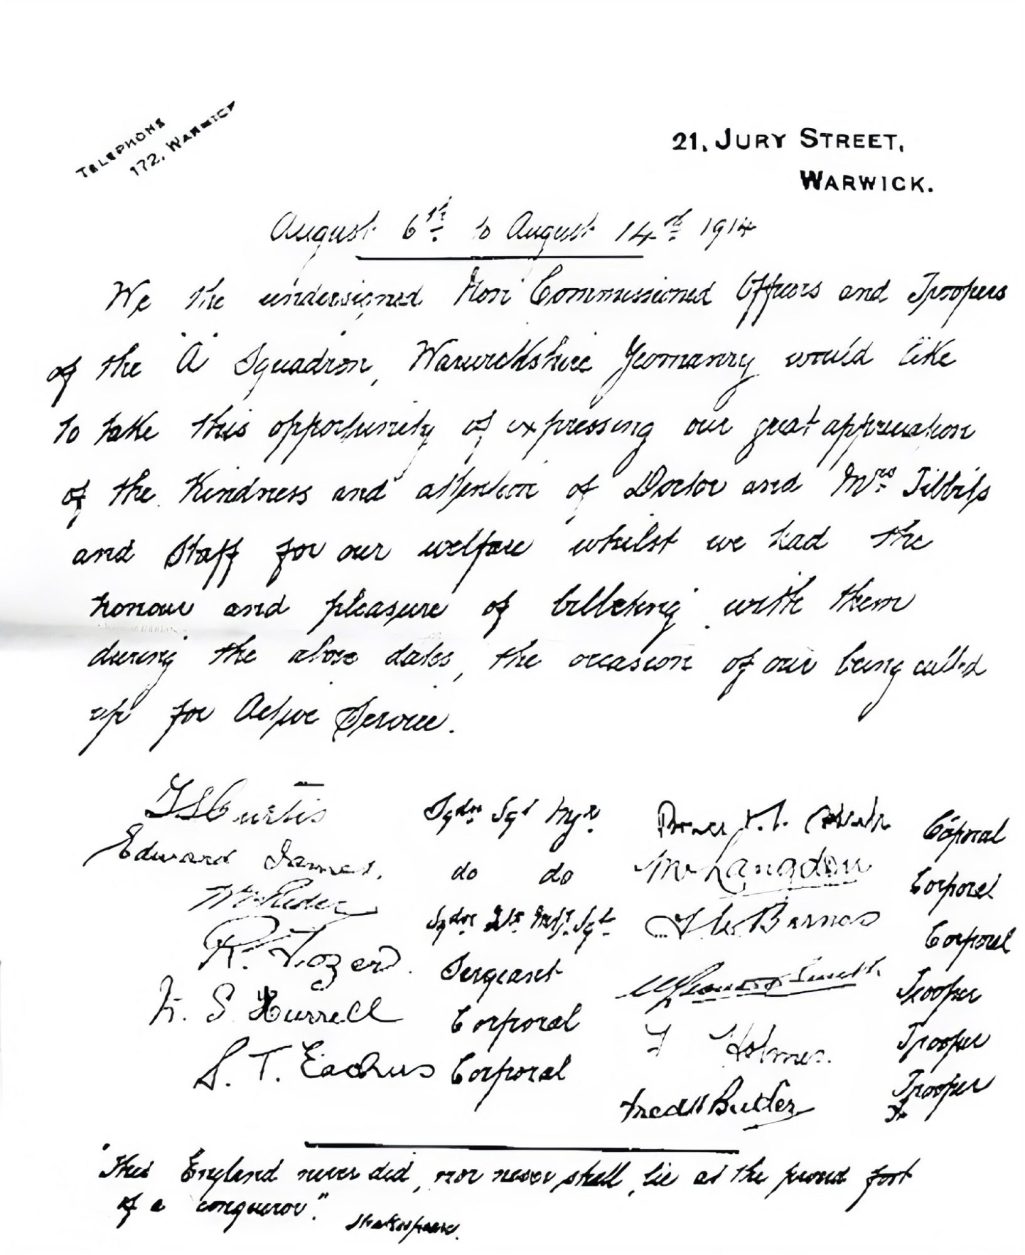 TELEPHONE
172, WARWICK
21, JURY STREET,
WARWICK.
August 6th to August 14th 1914
We the undersigned Non Commissioned Officers and Troopers
of the "A" Squadron, Warwickshire Yeomanry would like
to take this opportunity of expressing our great appreciation
of the Kindness and attention of Doctor and Mrs Tibbits
and Staff for our welfare whilst we had the
honour and pleasure of billeting with them
during the above dates, the occasion of our being called
up for Active Service.
Curtis Sqdn Sgt Mjr
Edward James. do do
Sqdn Sgt
R. Tozer. Sergeant
S Hurrell Corporal
S. T. Eachus Corporal
Corporal
Langdon Corporel
Barnes Corporel
Smith Trooper
Holmes. Trooper
Fred Butler Trooper
Tr
"This England never did, nor never shall, lie at the proud foot
of a conqueror." Shakespeare.